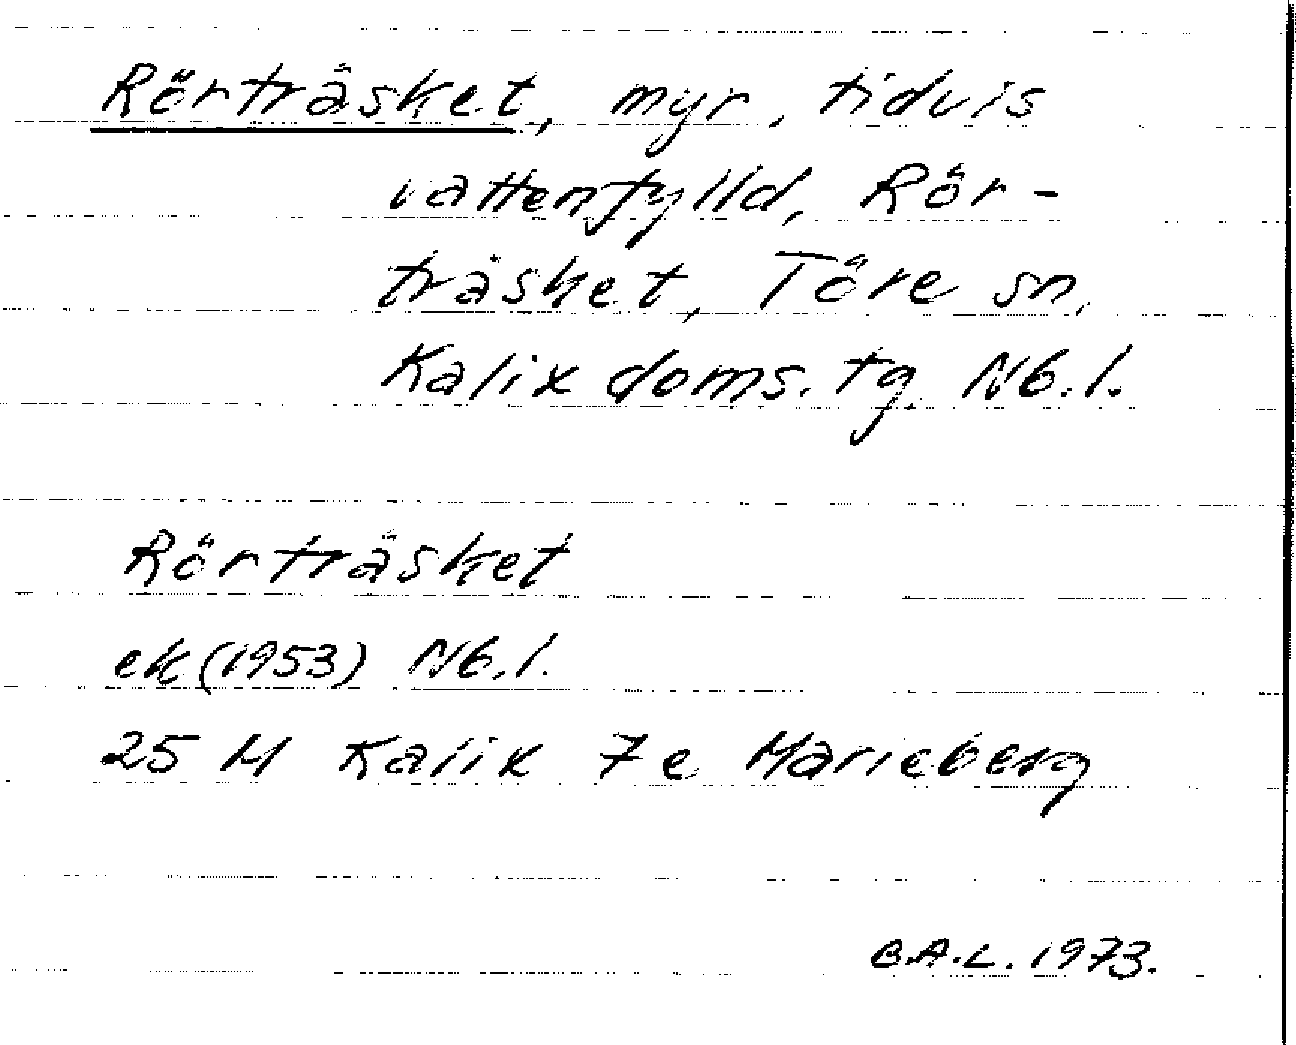 Rörträsket, myr, tidvis
vattenfylld, Rör-
träsket, Töre sn,
Kalix doms. tg. Nb. l.
Rörträsket
ek (1953) Nb. l.
25 M Kalix 7e Marieberg
B.A.L. 1973.